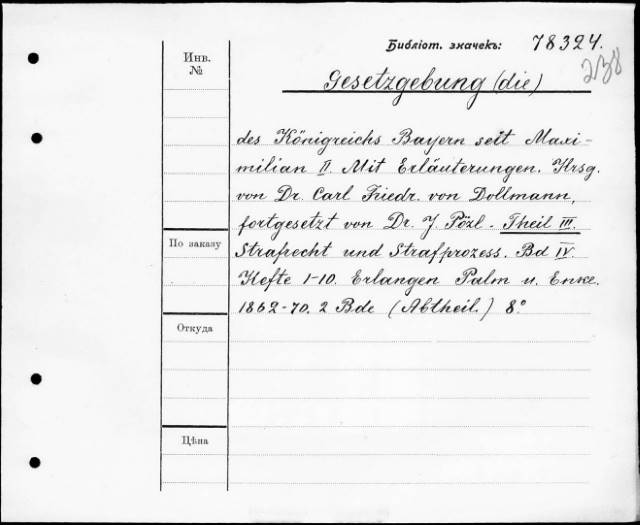 Библіот. значекъ: 78324.
238
Инв.
№
Gesetzgebung (die)
des Königreichs Bayern seit Maxi-
milian II. Mit Erläuterungen. Hrsg.
von Dr. Carl Friedr. von Dollmann,
fortgesetzt von Dr. J. Pözl. Theil III.
По заказу
Strafrecht und Strafprozess. Bd IV.
Hefte 1-10. Erlangen Palm u. Enke.
1862-70. 2 Bde (Abtheil.) 8°
Откуда
Цѣна